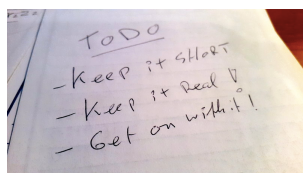 TODO
- Keep it SHORT
- Keep it Real !
- Get on with it!